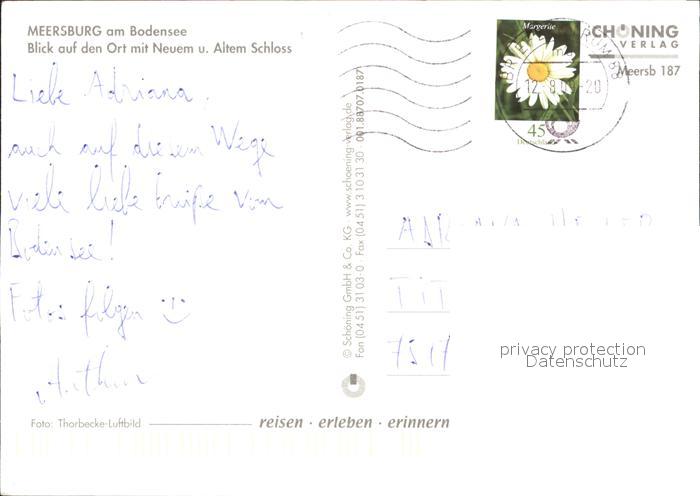 MEERSBURG am Bodensee
Blick auf den Ort mit Neuem u. Altem Schloss
Liebe Adriana,
auch auf diesem Wege
viele liebe Grüße vom
Bodensee!
Fotos folgen :-)
Arthur
Foto: Thorbecke-Luftbild
reisen · erleben · erinnern
© Schöning GmbH & Co. KG · www.schoening-verlag.de
Fon (04 51) 31 03-0 · Fax (04 51) 3 10 31 30 001.88707.0187
Margerite
45
Deutschland
BRIEFZENTRUM 88
SCHÖNING
VERLAG
Meersb 187
privacy protection
Datenschutz